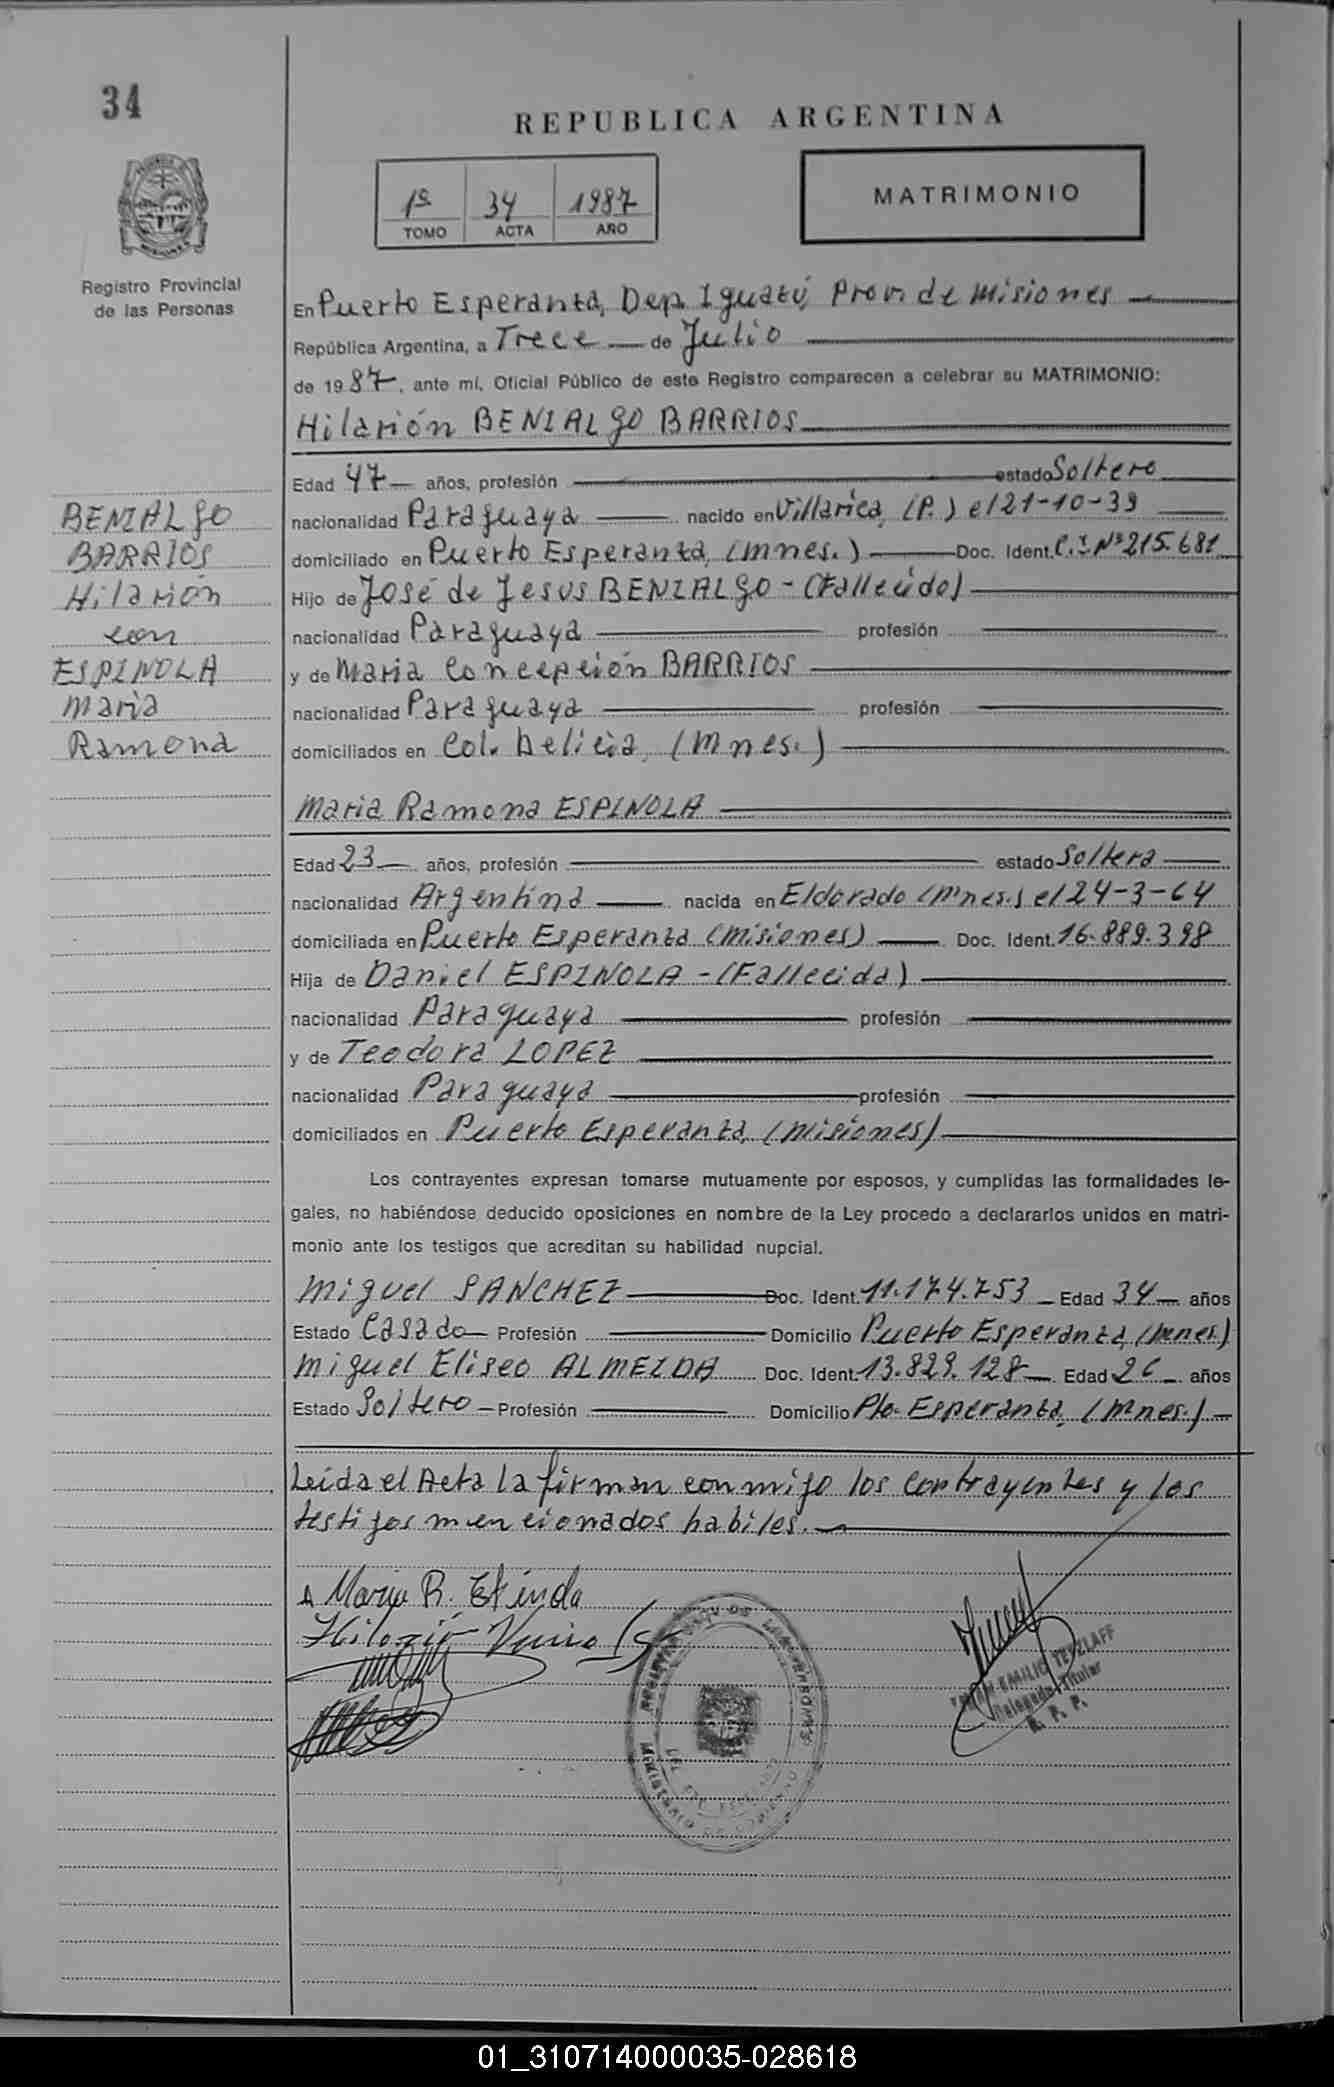 34
REPUBLICA ARGENTINA
1º 34 1987
TOMO ACTA AÑO
MATRIMONIO
Registro Provincial
de las Personas
En Puerto Esperanza, Dep. Iguazú, Prov. de Misiones
República Argentina, a Trece de Julio
de 1987, ante mí, Oficial Público de este Registro comparecen a celebrar su MATRIMONIO:
Hilarión BENIALGO BARRIOS
Edad 47 años, profesión estado Soltero
nacionalidad Paraguaya nacido en Villarica, (P.) el 21-10-39
domiciliado en Puerto Esperanza, (Mnes.) Doc. Ident. C.I. Nº 215.681
Hijo de José de Jesus BENIALGO - (Fallecido)
nacionalidad Paraguaya profesión
y de Maria Concepción BARRIOS
nacionalidad Paraguaya profesión
domiciliados en Col. Delicia, (Mnes.)
BENIALGO
BARRIOS
Hilarión
con
ESPINOLA
Maria
Ramona
Maria Ramona ESPINOLA
Edad 23 años, profesión estado Soltera
nacionalidad Argentina nacida en Eldorado (Mnes.) el 24-3-64
domiciliada en Puerto Esperanza (Misiones) Doc. Ident. 16.889.398
Hija de Daniel ESPINOLA - (Fallecida)
nacionalidad Paraguaya profesión
y de Teodora LOPEZ
nacionalidad Paraguaya profesión
domiciliados en Puerto Esperanza, (Misiones)
Los contrayentes expresan tomarse mutuamente por esposos, y cumplidas las formalidades le-
gales, no habiéndose deducido oposiciones en nombre de la Ley procedo a declararlos unidos en matri-
monio ante los testigos que acreditan su habilidad nupcial.
Miguel SANCHEZ Doc. Ident. 11.174.753 Edad 34 años
Estado Casado Profesión Domicilio Puerto Esperanza, (Mnes.)
Miguel Eliseo ALMEIDA Doc. Ident. 13.829.128 Edad 26 años
Estado Soltero Profesión Domicilio Pto. Esperanza, (Mnes.)
Leída el Acta la firman conmigo los contrayentes y los
testigos mencionados habiles.
Maria R.
EMILIO TETZLAFF
Delegado Titular
R. P. P.
01_310714000035-028618